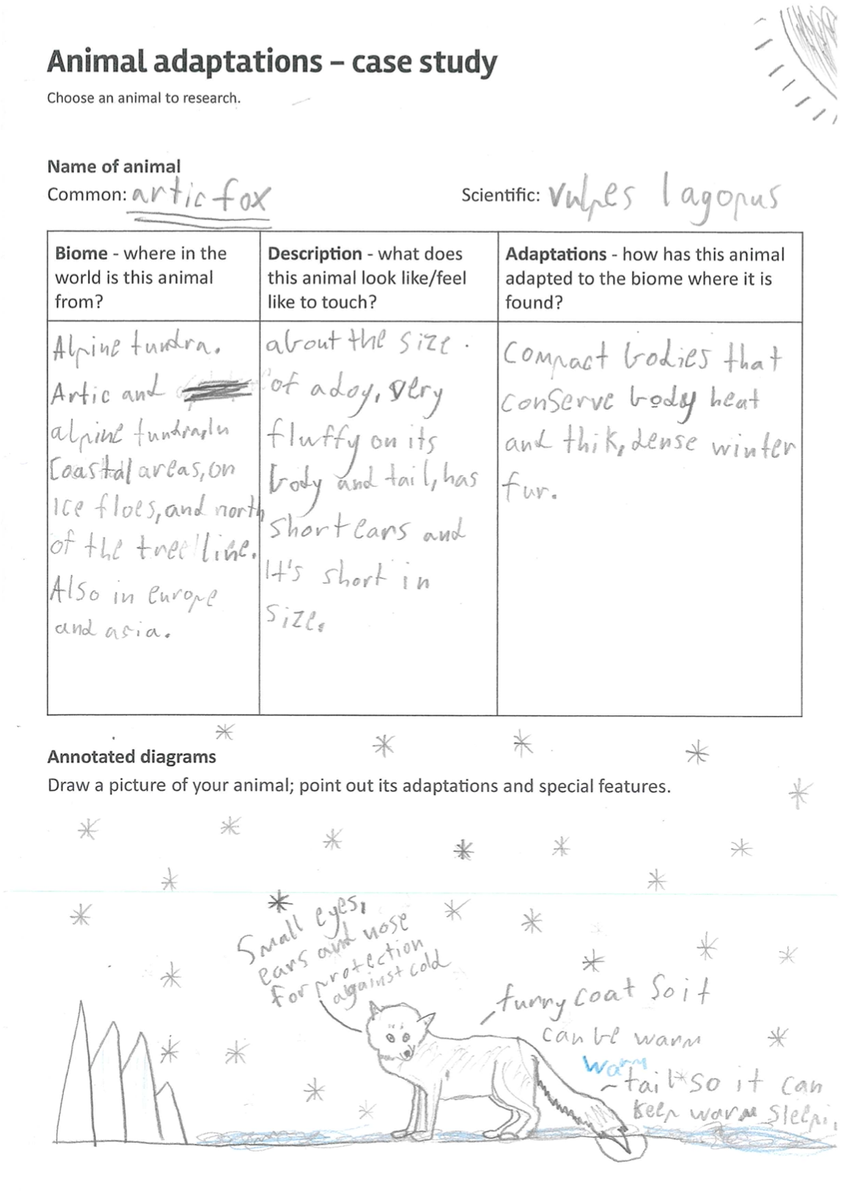 Animal adaptations – case study
Choose an animal to research.
Name of animal
Common: artic fox
Scientific: Vulpes lagopus
Biome - where in the
world is this animal
from?
Alpine tundra.
Artic and
alpine tundra,In
Coastal areas,on
Ice floes,and north
of the tree line.
Also in europe
and asia.
Description - what does
this animal look like/feel
like to touch?
about the size.
of a dog, very
fluffy on its
body and tail, has
short ears and
It's short in
size.
Adaptations - how has this animal
adapted to the biome where it is
found?
Compact bodies that
conserve body heat
and thik, dense winter
fur.
Annotated diagrams
Draw a picture of your animal; point out its adaptations and special features.
Small eyes,
ears and nose
for protection
against cold
furry coat so it
can be warm
warm
tail so it can
keep warm